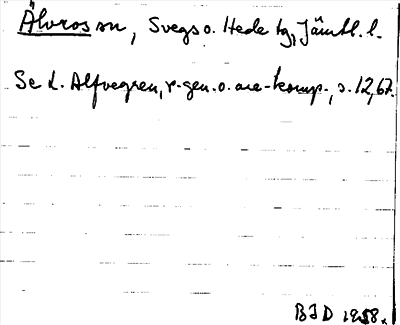 Älvros sn, Svegs o. Hede tg, Jämtl. l.
Se L. Alfvegren, r-gen. o. are-komp., s. 12, 67.
BJD 1958.